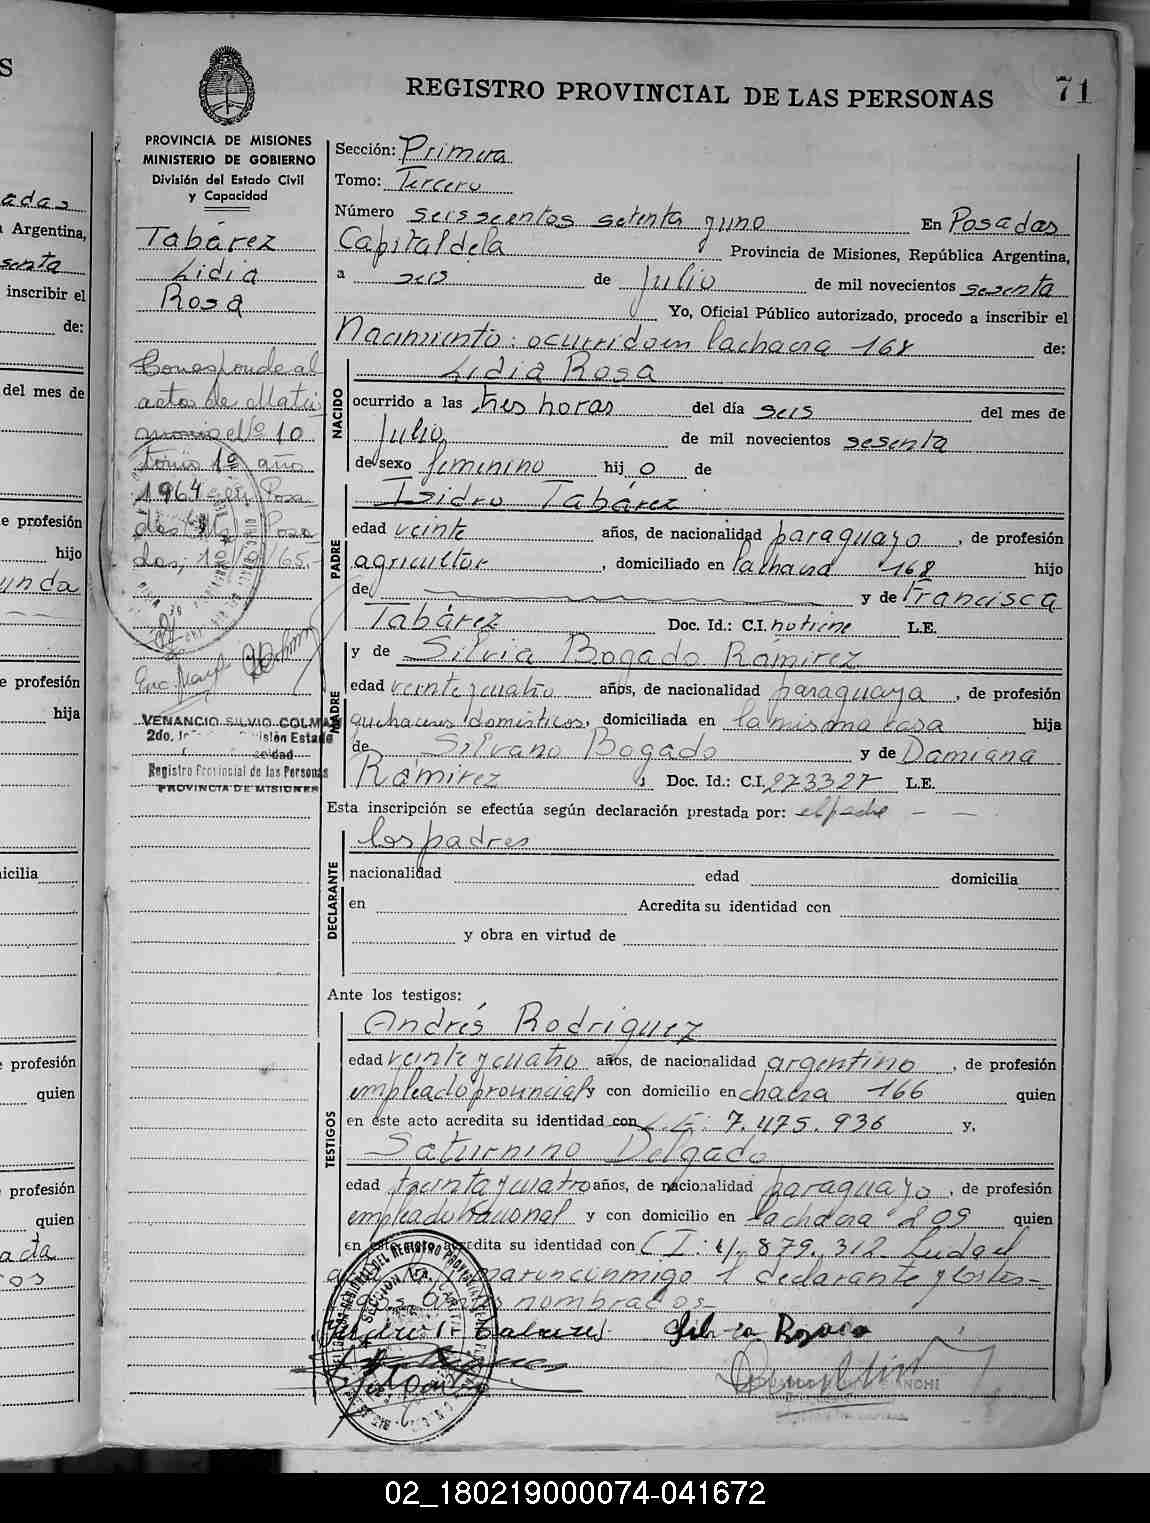 REGISTRO PROVINCIAL DE LAS PERSONAS
71
PROVINCIA DE MISIONES
MINISTERIO DE GOBIERNO
División del Estado Civil
y Capacidad
Tabárez
Lidia
Rosa
Corresponde al
acta de Matri
monio Nº 10
tomo 1º año
1964 en Posa
das
VENANCIO SILVIO COLMAN
2do.
Registro Provincial de las Personas
PROVINCIA DE MISIONES
Sección: Primera
Tomo: Tercero
Número seisscentos setenta y uno En Posadas
Capital de la Provincia de Misiones, República Argentina,
a seis de Julio de mil novecientos sesenta
Yo, Oficial Público autorizado, procedo a inscribir el
Nacimiento: ocurrido en la chacra 168 de:
NACIDO
Lidia Rosa
ocurrido a las tres horas del día seis del mes de
Julio de mil novecientos sesenta
de sexo femenino hij o de
PADRE
Isidro Tabárez
edad veinte años, de nacionalidad paraguayo, de profesión
agricultor, domiciliado en la chacra 168 hijo
de y de Francisca
Tabárez Doc. Id.: C.I. no tiene L.E.
MADRE
y de Silvia Bogado Ramirez
edad veinte y cuatro años, de nacionalidad paraguaya, de profesión
quehaceres domésticos, domiciliada en la misma casa hija
de Silvano Bogado y de Damiana
Ramirez, Doc. Id.: C.I. 273327 L.E.
Esta inscripción se efectúa según declaración prestada por: el padre
DECLARANTE
los padres
nacionalidad edad domicilia
en Acredita su identidad con
y obra en virtud de
Ante los testigos:
TESTIGOS
Andrés Rodriguez
edad veinte y cuatro años, de nacionalidad argentino, de profesión
empleado provincial y con domicilio en chacra 166 quien
en éste acto acredita su identidad con L.E: 7.475.936 y,
Saturnino Delgado
edad treinta y cuatro años, de nacionalidad paraguayo, de profesión
empleado nacional y con domicilio en la chacra 209 quien
en este acredita su identidad con C I: 41.879.312 Leida el
conmigo el declarante y los tes-
nombrados-
Silvia Bogado
02_180219000074-041672